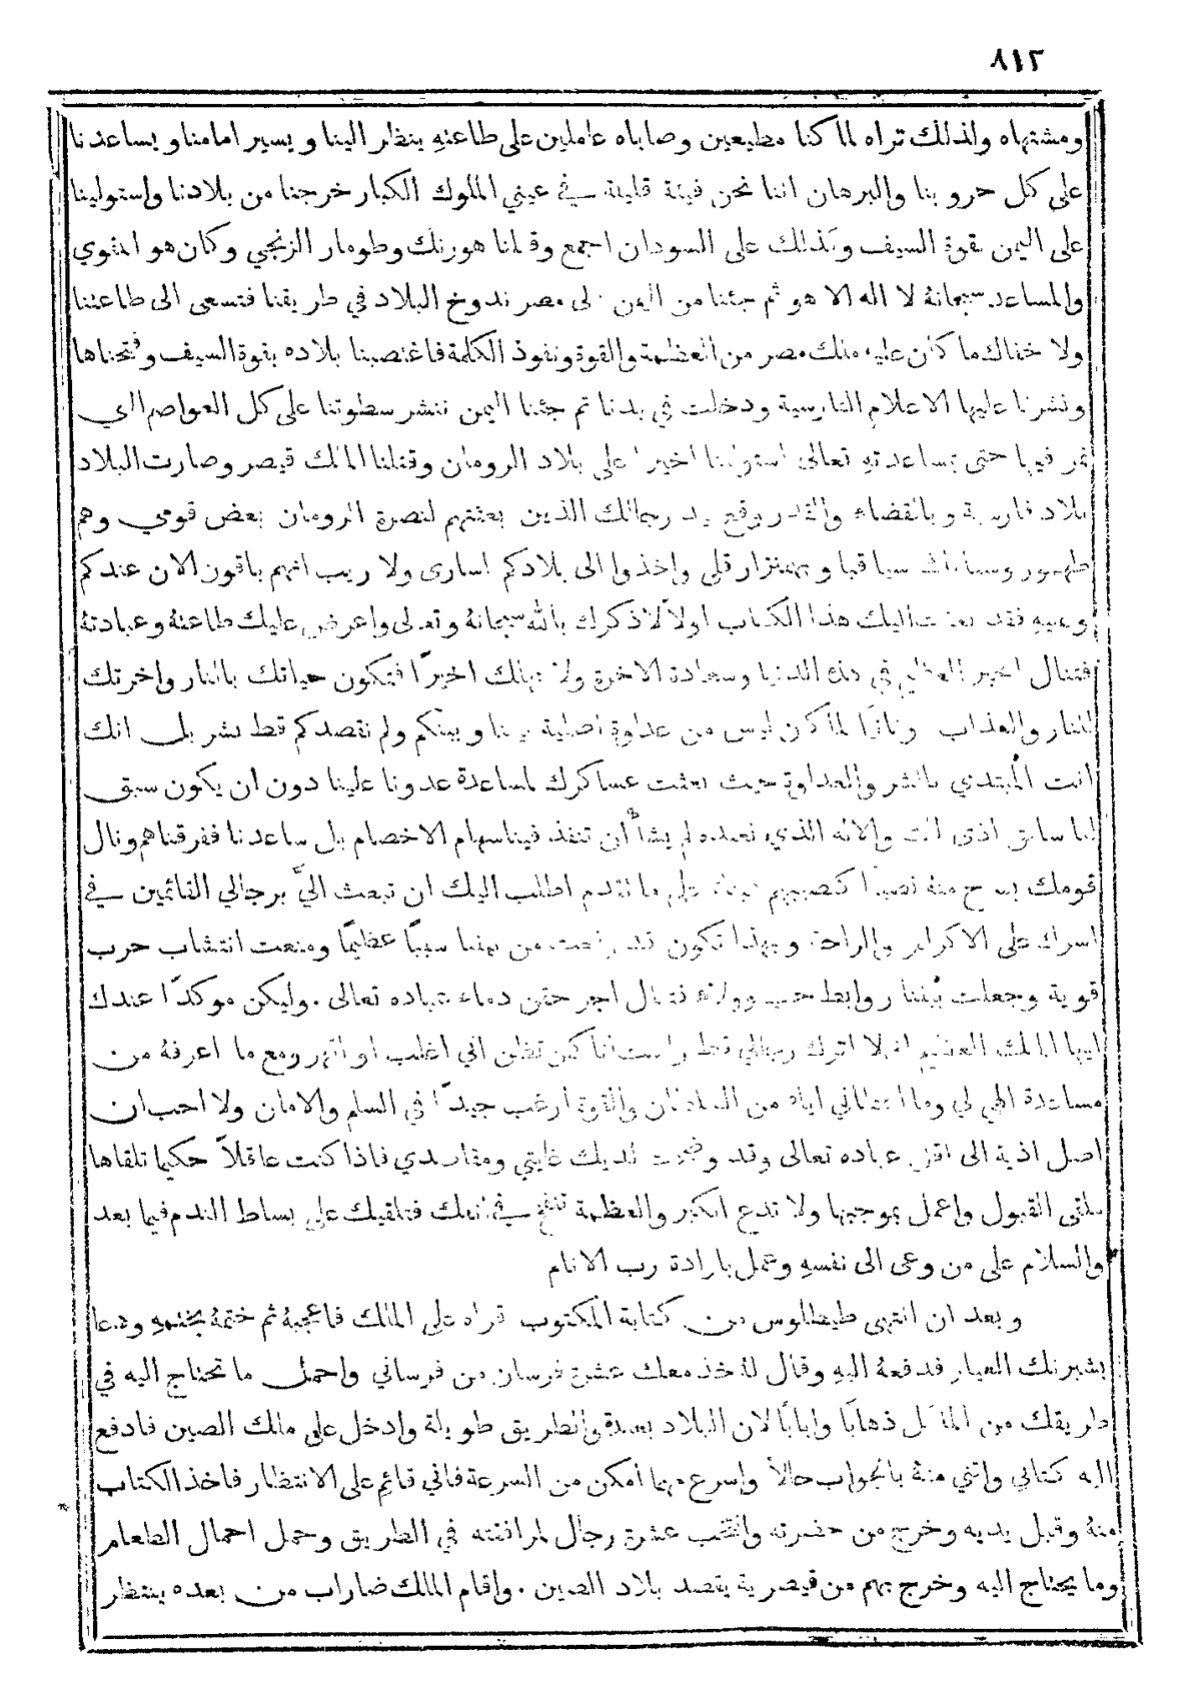 ٨١٢
ومشتهاه ولذلك تراه لما كنا مطيعين وصاياه عاملين على طاعته ينظر الينا ويسير امامنا ويساعدنا
على كل حروبنا والبرهان اننا نحن فيئة قليلة في عيني الملوك الكبار خرجنا من بلادنا واستولينا
على اليمن بقوة السيف وكذلك على السودان اجمع وقتلنا هورنك وطومار الزنجي وكان هو المقوي
والمساعد سبحانهُ لا اله الا هو ثم جئنا من اليمن الى مصر ندوخ البلاد في طريقنا فتسعى الى طاعتنا
ولا خفاك ما كان عليه ملك مصر من العظمة والقوة ونفوذ الكلمة فاغتصبنا بلاده بقوة السيف وفتحناها
ونشرنا عليها الاعلام الفارسية ودخلت في يدنا ثم جئنا اليمن ننشر سطوتنا على كل العواصم التي
نمر فيها حتى بمساعدته تعالى استولينا اخيرا على بلاد الرومان وقتلنا الملك قيصر وصارت البلاد
بلاد فارسية وبالقضاء والقدر وقع بيد رجالك الذين بعثتهم لنصرة الرومان بعض قومي وهم
طهمور وسيا قبا وبهمنزار قلي واخذوا الى بلادكم اسارى ولا ريب انهم باقون الان عندكم
وعليهِ فقد بعثت اليك هذا الكتاب اولاً لاذكرك بالله سبحانهُ وتعالى واعرض عليك طاعتهُ وعبادتهُ
فتنال الخير العظيم في هذه الدنيا وسعادة الاخرة ولا تهلك اخيرًا فتكون حياتك بالنار واخرتك
للنار والعذاب وثانيًا لما كان ليس من عداوة اصلية بيننا وبينكم ولم نقصدكم قط بشر بل انك
انت المبتدي بالشر والعداوة حيث بعثت عساكرك لمساعدة عدونا علينا دون ان يكون سبق
لنا سابق اذى لك والاله الذي نعبده لم يشأ أن تنفذ فينا سهام الاخصام بل ساعدنا ففرقناهم ونال
قومك منهُ نصيبًا كنصيبهم على ما تقدم اطلب اليك ان تبعث اليَّ برجالي القائمين في
اسرك على الاكرام والراحة وبهذا تكون قد رفعت من بيننا سببًا عظيمًا ومنعت انتشاب حرب
قوية وجعلت بيننا روابط حب وولاء فتنال اجر حقن دماء عباده تعالى . وليكن موكدًا عندك
ايها الملك العظيم اني لا اترك رجالي قط ولست انا كمن تظن اني اغلب او اقهر ومع ما اعرفهُ من
مساعدة الهي لي وما اعطاني اياه من السلطان والقوة ارغب جيدًا في السلم والامان ولا احب ان
اصل اذية الى اقل عباده تعالى وقد وضحت لديك غايتي ومقاصدي فاذا كنت عاقلاً حكيما تلقاها
ملقى القبول واعمل بموجبها ولا تدع الكبر والعظمة تنفخ في انفك فتلقيك على بساط الندم فيما بعد
والسلام على من وعى الى نفسهِ وعمل بارادة رب الانام
وبعد ان انتهى طيطلوس من كتابة المكتوب قراه على الملك فاعجبهُ ثم ختمهُ بختمهِ ودعا
بشبرنك العيار فدفعهُ اليهِ وقال لهُ خذ معك عشرة فرسان من فرساني واحمل ما تحتاج اليه في
طريقك من المأكل ذهابًا وايابًا لان البلاد بعيدة والطريق طويلة وادخل على ملك الصين فادفع
اليه كتابي واتني منهُ بالجواب حالاً واسرع مهما امكن من السرعة فاني قائم على الانتظار فاخذ الكتاب
منهُ وقبل يديه وخرج من حضرته وانتخب عشرة رجال لمرافقته في الطريق وحمل احمال الطعام
وما يحتاج اليه وخرج بهم من قيصرية يقصد بلاد الصين . واقام الملك ضاراب من بعده ينتظر